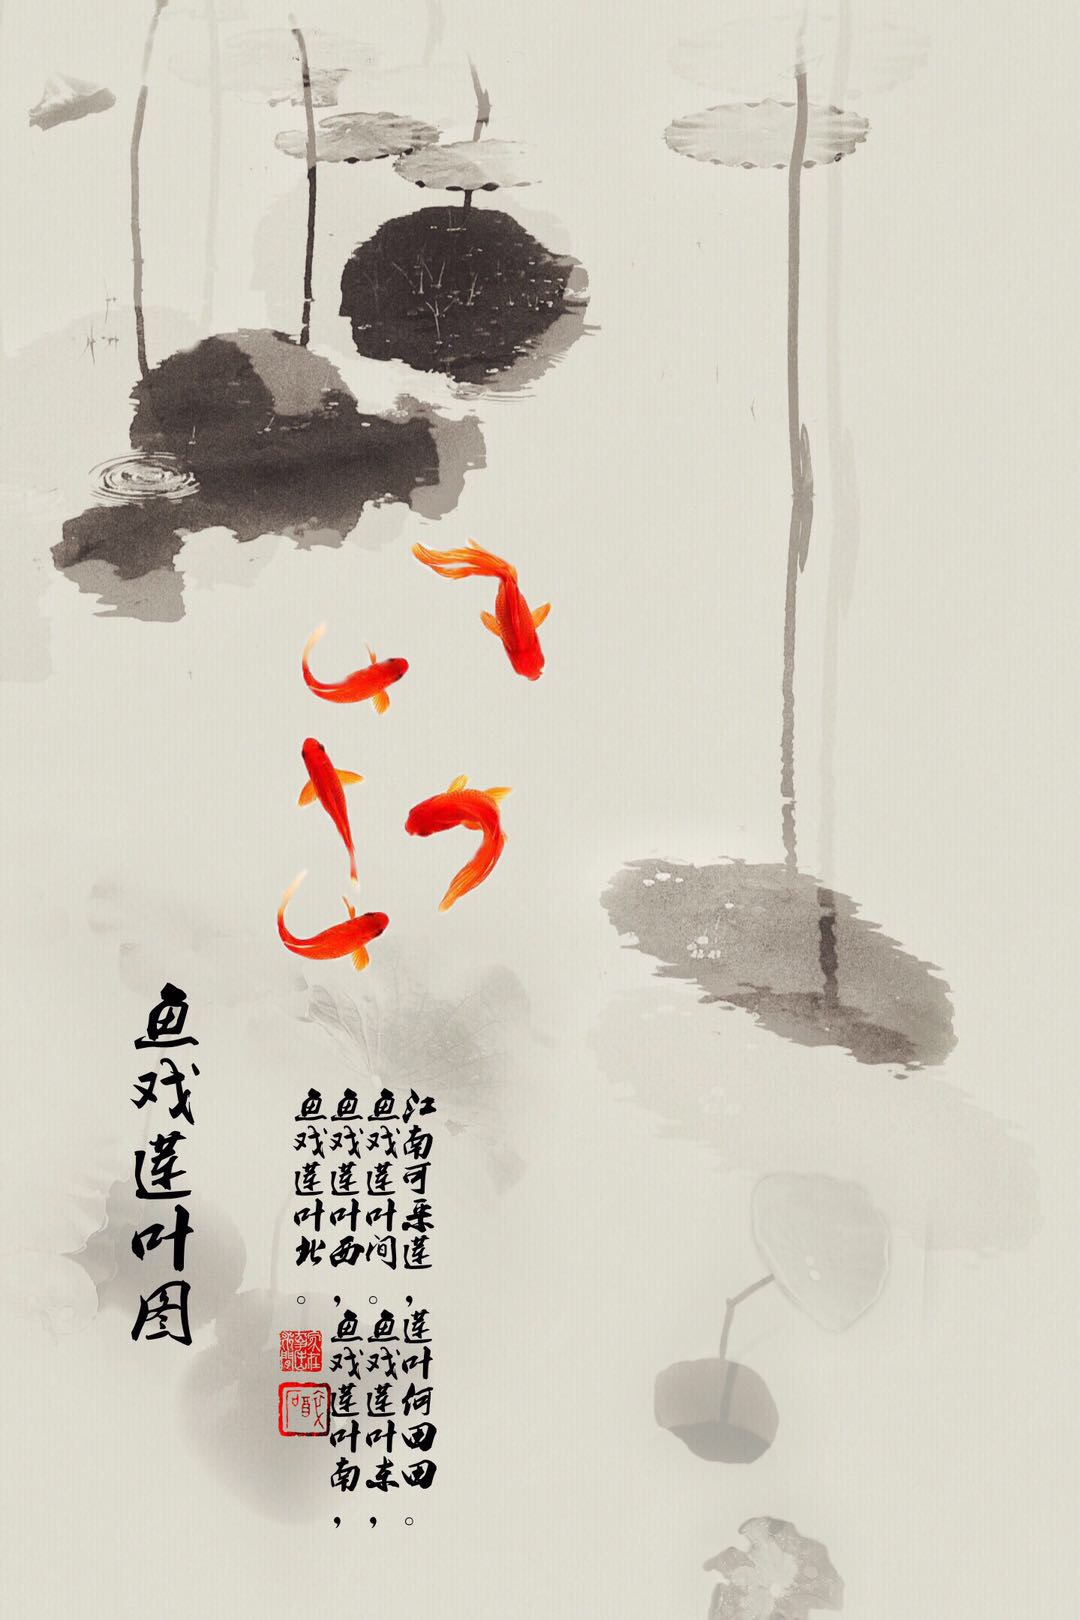 鱼戏莲叶图
江南可采莲，莲叶何田田。
鱼戏莲叶间。鱼戏莲叶东，
鱼戏莲叶西，鱼戏莲叶南，
鱼戏莲叶北。